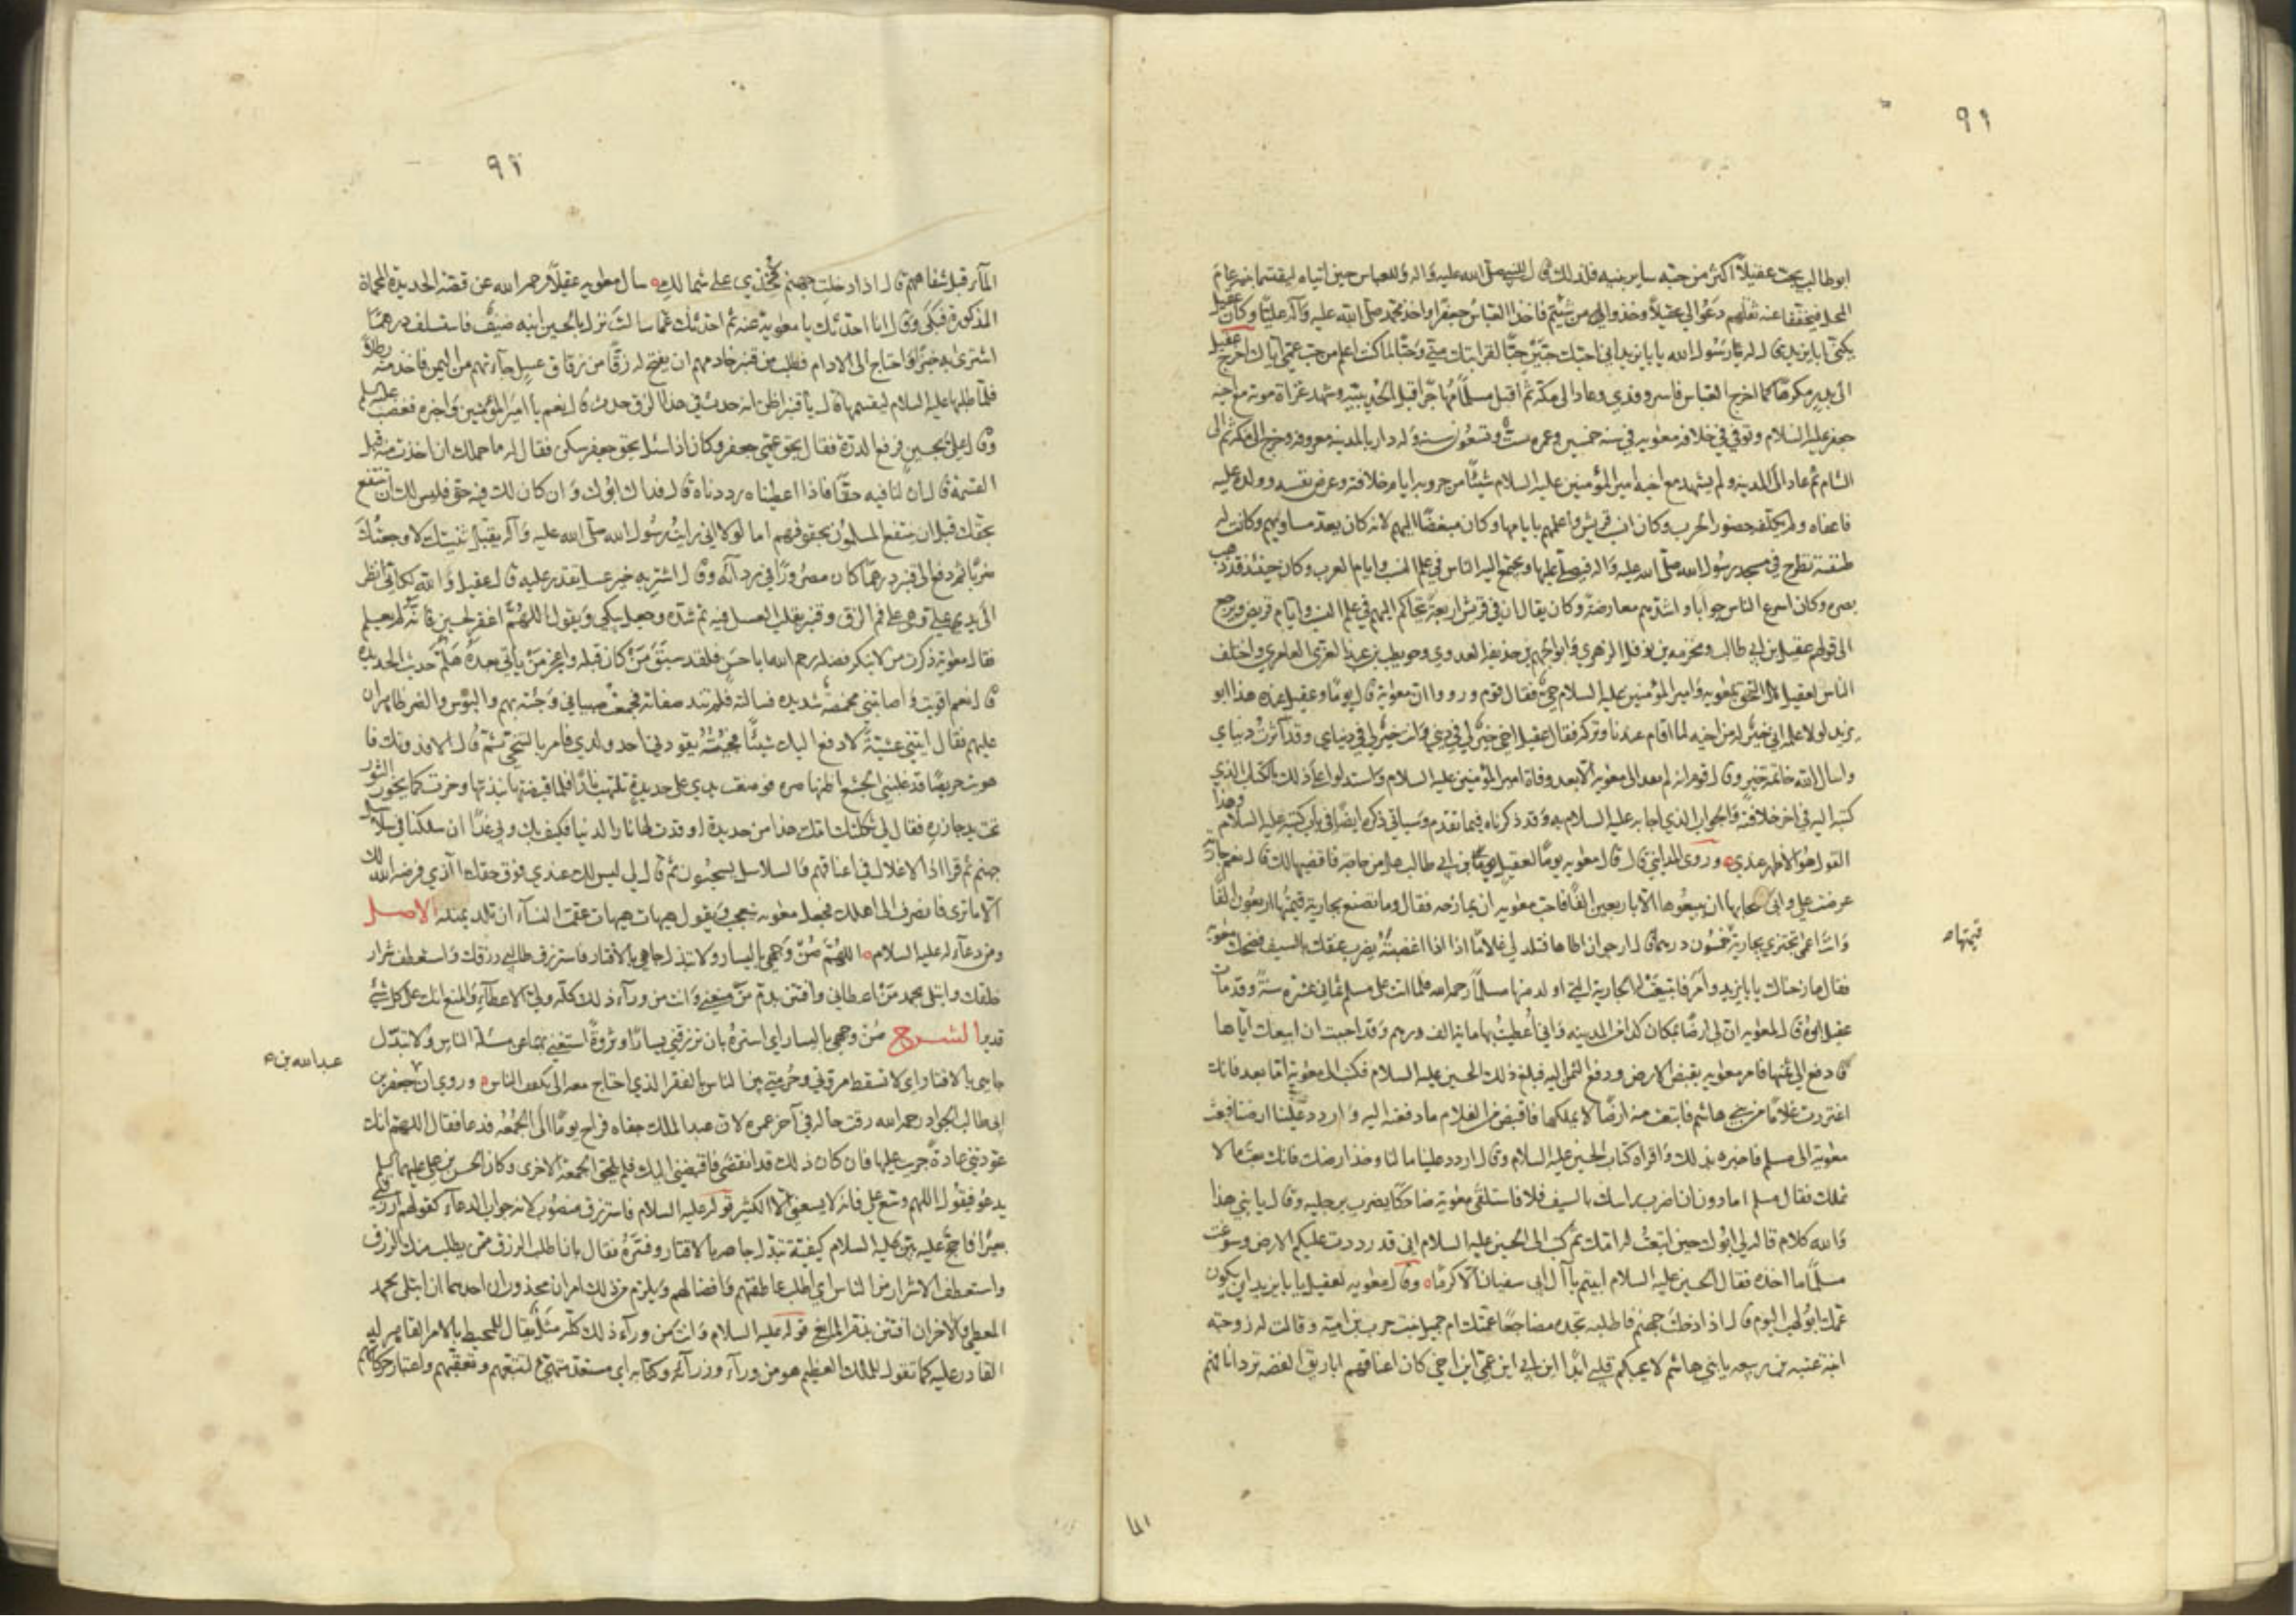 ٩١
ابوطالب يحب عقيلاً اكثر من حبه ساير بنيه فلذلك قال للنبي صلى الله عليه واله وللعباس حين اتياه ليقتسما بنيه عام
المحل فيخففا عنه ثقلهم دعوا لي عقيلاً وخذوا من شئتم فاخذ العباس جعفرا واخذ محمد صلى الله عليه وآله علياً وكان عقيل
يكنى ابا يزيد قال له رسول الله يا با يزيد اني احبك حبين حبّا لقرابتك مني وحبّا لما كنت اعلم من حب عمي اياك اخرج عقيل
الى بدر مكرها كما اخرج العباس فاسر وفدي وعاد الى مكة ثم اقبل مسلماً مهاجراً قبل الحديبيه وشهد غزاة موته مع اخيه
جعفر عليه السلام وتوفي في خلافة معويه في سنه خمسين وعمره ست وتسعون سنه وله دار بالمدينه معروفه وخرج الى مكه ثم الى
الشام ثم عاد الى المدينه ولم يشهد مع اخيه امير المؤمنين عليه السلام شيئاً من حروبه ايام خلافته وعرض نفسه وولده عليه
فاعفاه ولم يكلفه حضور الحرب وكان انسب قريش واعلمهم بايامها وكان مبغضاً اليهم لانه كان يعد مساويهم وكانت له
طنفسة تطرح في مسجد رسول الله صلى الله عليه واله فيصلي عليها ويجتمع اليه الناس في علم النسب وايام العرب وكان حينئذ قد ذهب
بصره وكان اسرع الناس جوابا واشدهم معارضة وكان يقال ان في قريش اربعة يتحاكم اليهم في علم النسب وايام قريش ويرجع
الى قولهم عقيل بن ابي طالب ومخرمه بن نوفل الزهري وابو الجهم بن حذيفه العدوي وحويطب بن عبد العزى العامري واختلف
الناس في عقيل هل التحق بمعويه وامير المؤمنين عليه السلام حيّ فقال قوم ورووا ان معوية قال يوما وعقيل عنده هذا ابو
يزيد لولا علمه اني خير له من اخيه لما اقام عندنا وتركه فقال عقيل اخي خير لي في ديني وانت خير لي في دنياي وقد آثرت دنياي
واسال الله خاتمة خير وقال قوم انه لم يعد الى معويه الا بعد وفاة امير المؤمنين عليه السلام واستدلوا على ذلك بالكتاب الذي
كتبه اليه في اخر خلافته والجواب الذي اجابه عليه السلام به وقد ذكرناه فيما تقدم وسياتي ذكره ايضاً في باب كتبه عليه السلام وهذا
القول هو الاظهر عندي وروى المدايني قال قال معويه يوماً لعقيل بن ابي طالب هل من حاجه فاقضيها لك قال نعم جارية
عرضت علي وابى اصحابها ان يبيعوها الا باربعين الفاً فاحب معويه ان يمازحه فقال وما تصنع بجارية قيمتها اربعون الفا
وانت اعمى تجتزي بجارية خمسون درهما قال ارجو ان اطاها فتلد لي غلامًا اذا اغضبته يضرب عنقك بالسيف فضحك معوية
قيمتها
فقال مازحناك يا با يزيد وامر فابتيعت له الجارية التي اولد منها مسلماً رحمه الله فلما اتت على مسلم ثماني عشرة سنة وقد مات
عقيل ابوه قال لمعويه ان لي ارضاً بمكان كذا من المدينه واني اعطيت بها ماية الف درهم وقد احببت ان ابيعك اياها
فادفع الي ثمنها فامر معويه بقبض الارض ودفع الثمن اليه فبلغ ذلك الحسين عليه السلام فكتب الى معوية اما بعد فانك
اغتررت غلاماً من بني هاشم فابتعت منه ارضاً لا يملكها فاقبض من الغلام ما دفعته اليه واردد علينا ارضنا فبعث
معوية الى مسلم فاخبره بذلك واقراه كتاب الحسين عليه السلام وقال اردد علينا مالنا وخذ ارضك فانك بعت ما لا
تملك فقال مسلم اما دون ان اضرب راسك بالسيف فلا فاستلقى معوية ضاحكا يضرب برجليه وقال يا بني هذا
والله كلام قاله لي ابوك حين ابتعت له امك ثم كتب الى الحسين عليه السلام اني قد رددت عليكم الارض وسوغت
مسلماً ما اخذه فقال الحسين عليه السلام ابيتم يا آل ابي سفيان الا كرما وقال معويه لعقيل يا با يزيد اين يكون
عمك ابو لهب اليوم قال اذا دخلت جهنم فاطلبه تجده مضاجعًا عمتك ام جميل بنت حرب بن امية وقالت له زوجته
ابنة عتبه بن ربيعه يا بني هاشم لا يحبكم قلبي ابدا اين ابي اين عمي اين اخي كان اعناقهم اباريق الفضه ترد انافهم
٩٢
الماء قبل شفاههم قال اذا دخلت جهنم فخذي على شمالك سال معويه عقيلاً رحمه الله عن قصة الحديدة المحماة
المذكورة فبكى وقال انا احدثك يا معوية عنه ثم احدثك عما سالت نزل بالحسين ابنه ضيف فاستسلف درهمًا
اشترى به خبزا واحتاج الى الادام فطلب من قنبر خادمهم ان يفتح له زقاً من زقاق عسل جاءتهم من اليمن فاخذ منه رطلا
فلما طلبها عليه السلام ليقسمها قال يا قنبر اظن انه حدث في هذا الزق حدث قال نعم يا امير المؤمنين واخبره فغضب عليه السلم
وقال علي بحسين فرفع الدرة فقال بحق عمي جعفر وكان اذا سئل بحق جعفر سكن فقال له ما حملك ان اخذت منه قبل
القسمة قال ان لنا فيه حقاً فاذا اعطيناه رددناه قال فداك ابوك وان كان لك فيه حق فليس لك ان تنتفع
بحقك قبل ان ينتفع المسلمون بحقوقهم اما لولا اني رايت رسول الله صلى الله عليه وآله يقبل ثنيتك لاوجعتك
ضربا ثم دفع الى قنبر درهماً كان مصروراً في ردآئه وقال اشتر به خير عسل تقدر عليه قال عقيل والله لكاني انظر
الى يدي علي وهي على فم الزق وقنبر يقلب العسل فيه ثم شده وجعل يبكي ويقول اللهم اغفر لحسين فانه لم يعلم
فقال معوية ذكرت من لا ينكر فضله رحم الله ابا حسن فلقد سبق من كان قبله واعجز من ياتي بعده هلم حديث الحديدة
قال نعم اقويت واصابتني مخمصة شديدة فسالته فلم تند صفاته فجمعت صبياني وجئته بهم والبؤس والضر ظاهران
عليهم فقال ايتني عشية لادفع اليك شيئًا فجئته يقودني احد ولدي فامره بالتنحي ثم قال الا فدونك فا
هويت حريصًا قد غلبني الجشع اظنها صره فوضعت يدي على حديدة تلتهب نارًا فلما قبضتها نبذتها وخرت كما يخور الثور
تحت يد جازره فقال لي ثكلتك امك هذا من حديدة اوقدت لها نار الدنيا فكيف بك وبي غداً ان سلكنا في سلاسل
جهنم ثم قرا اذ الاغلال في اعناقهم والسلاسل يسحبون ثم قال لي ليس لك عندي فوق حقك الذي فرضه الله لك
الا ما ترى فانصرف الى اهلك فجعل معويه يتعجب ويقول هيهات هيهات عقمت النسآء ان تلد بمثله الاصل
ومن دعآء له عليه السلام اللهم صن وجهي باليسار ولا تبذل جاهي بالاقتار فاسترزق طالبي رزقك واستعطف شرار
خلقك وابتلى بحمد من اعطاني وافتتن بذم من منعني وانت من ورآء ذلك كله ولي الاعطآء والمنع انك على كل شيء
قدير الشرح صن وجهي باليسار اي استره بان ترزقني يسارًا وثروةً استغني بهما عن مسئلة الناس ولا تبذل
جاهي بالاقتار اي لا تسقط مروتي وحرمتي بين الناس بالفقر الذي احتاج معه الى تكفف الناس وروي ان جعفر بن
عبد الله بن
ابي طالب الجواد رحمه الله رقت حاله في آخر عمره لان عبد الملك جفاه فراح يوماً الى الجمعه فدعا فقال اللهم انك
عودتني عادة جريت عليها فان كان ذلك قد انقضى فاقبضني اليك فلم يلحق الجمعة الاخرى وكان الحسن بن علي عليهما السلم
يدعو فيقول اللهم وسع علي فانه لا يسعني الا الكثير قوله عليه السلام فاسترزق منصوب لانه جواب الدعآء كقولهم ارزقني
بعيرًا فاحج عليه بين عليه السلام كيفية تبذل جاهه بالاقتار وفسره فقال بان اطلب الرزق ممن يطلب منك الرزق
واستعطف الاشرار من الناس اي اطلب عاطفتهم وافضالهم ويلزم من ذلك امران محذوران احدهما ان ابتلى بحمد
المعطي والاخر ان افتتن بذم المانع قوله عليه السلام وانت من ورآء ذلك كله مثل يقال للمحيط بالامر القاهر له
القادر عليه كما تقول للملك العظيم هو من ورآء وزرآئه وكتابه اي مستعد متهيئ لتتبعهم وتعقبهم واعتبار حركاتهم